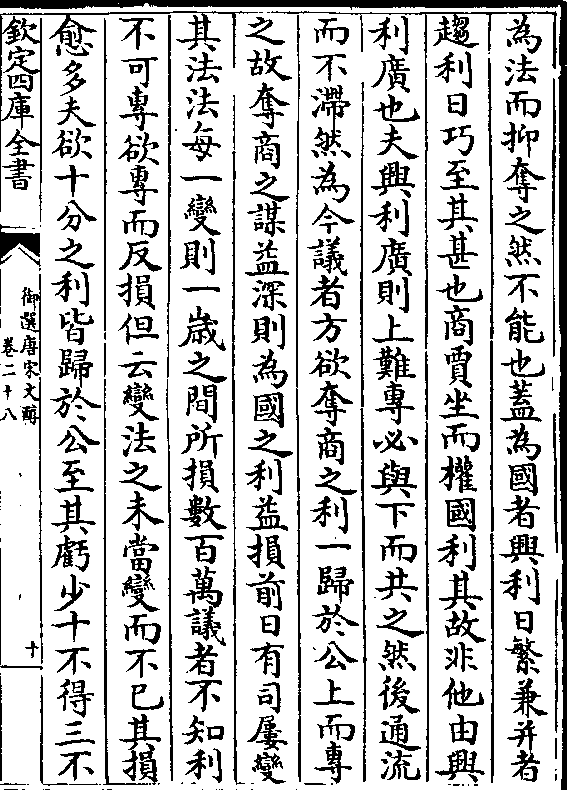 為法而抑奪之然不能也蓋為國者興利日繁兼并者
趨利日巧至其甚也商賈坐而權國利其故非他由興
利廣也夫興利廣則上難專必與下而共之然後通流
而不滯然為今議者方欲奪商之利一歸於公上而專
之故奪商之謀益深則為國之利益損前日有司屢變
其法法每一變則一歲之間所損數百萬議者不知利
不可專欲專而反損但云變法之未當變而不已其損
愈多夫欲十分之利皆歸於公至其虧少十不得三不
欽定四庫全書
御選唐宋文醇
卷二十八
十